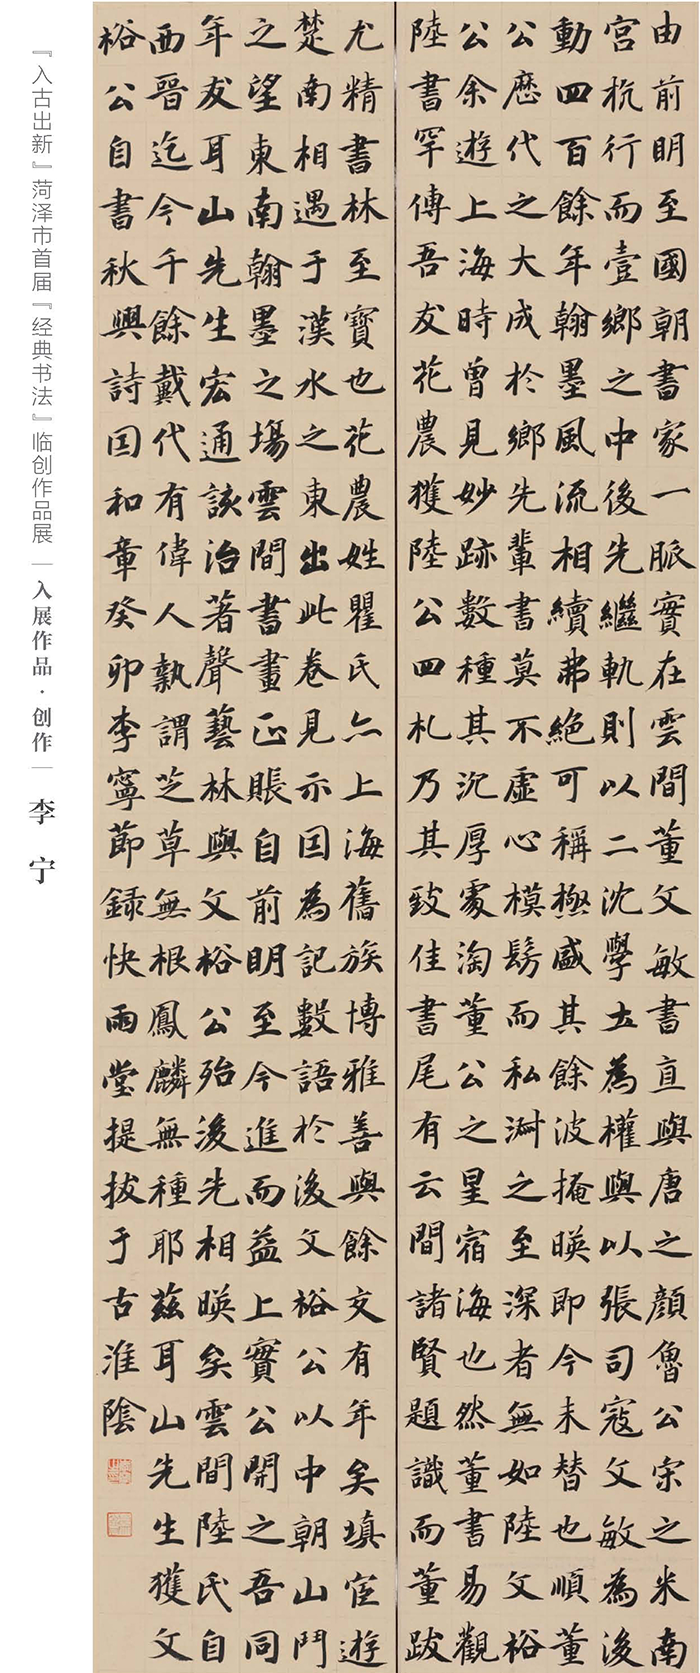 『入古出新』菏泽市首届『经典书法』临创作品展｜入展作品·创作｜李宁
由前明至國朝書家一脈實在雲間董文敏書直與唐之顏魯公宋之米南
宮杭行而壹鄉之中後先繼軌則以二沈學士為權輿以張司寇文敏為後
動四百餘年翰墨風流相續弗絕可稱極盛其餘波掩暎即今未替也順董
公歷代之大成於鄉先輩書莫不虛心模髣而私淑之至深者無如陸文裕
公余遊上海時曾見妙跡數種其沉厚處淘董公之星宿海也然董書易觀
陸書罕傳吾友花農獲陸公四札乃其致佳書尾有云間諸賢題識而董跋
尤精書林至寶也花農姓瞿氏亦上海舊族博雅善與餘交有年矣填宦遊
楚南相遇于漢水之東出此卷見示因為記數語於後文裕公以中朝山鬥
之望東南翰墨之場雲間書畫正賬自前明至今進而益上實公開之吾同
年友耳山先生宏通該洽著聲藝林與文裕公殆後先相暎矣雲間陸氏自
西晉迄今千餘戴代有偉人孰謂芝草無根鳳麟無種耶茲耳山先生獲文
裕公自書秋興詩因和章癸卯李寧節録快雨堂提拔于古淮陰